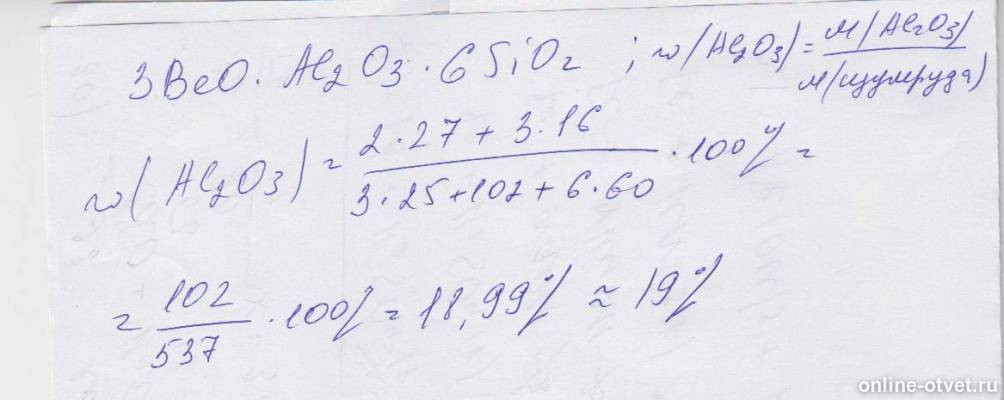 3BeO·Al2O3·6SiO2 ; w(Al2O3) = M(Al2O3) / M(изумруда)
w(Al2O3) = 2·27 + 3·16 / 3·25+102+6·60 ·100% =
= 102 / 537 ·100% = 18,99% ≈ 19%
online-otvet.ru